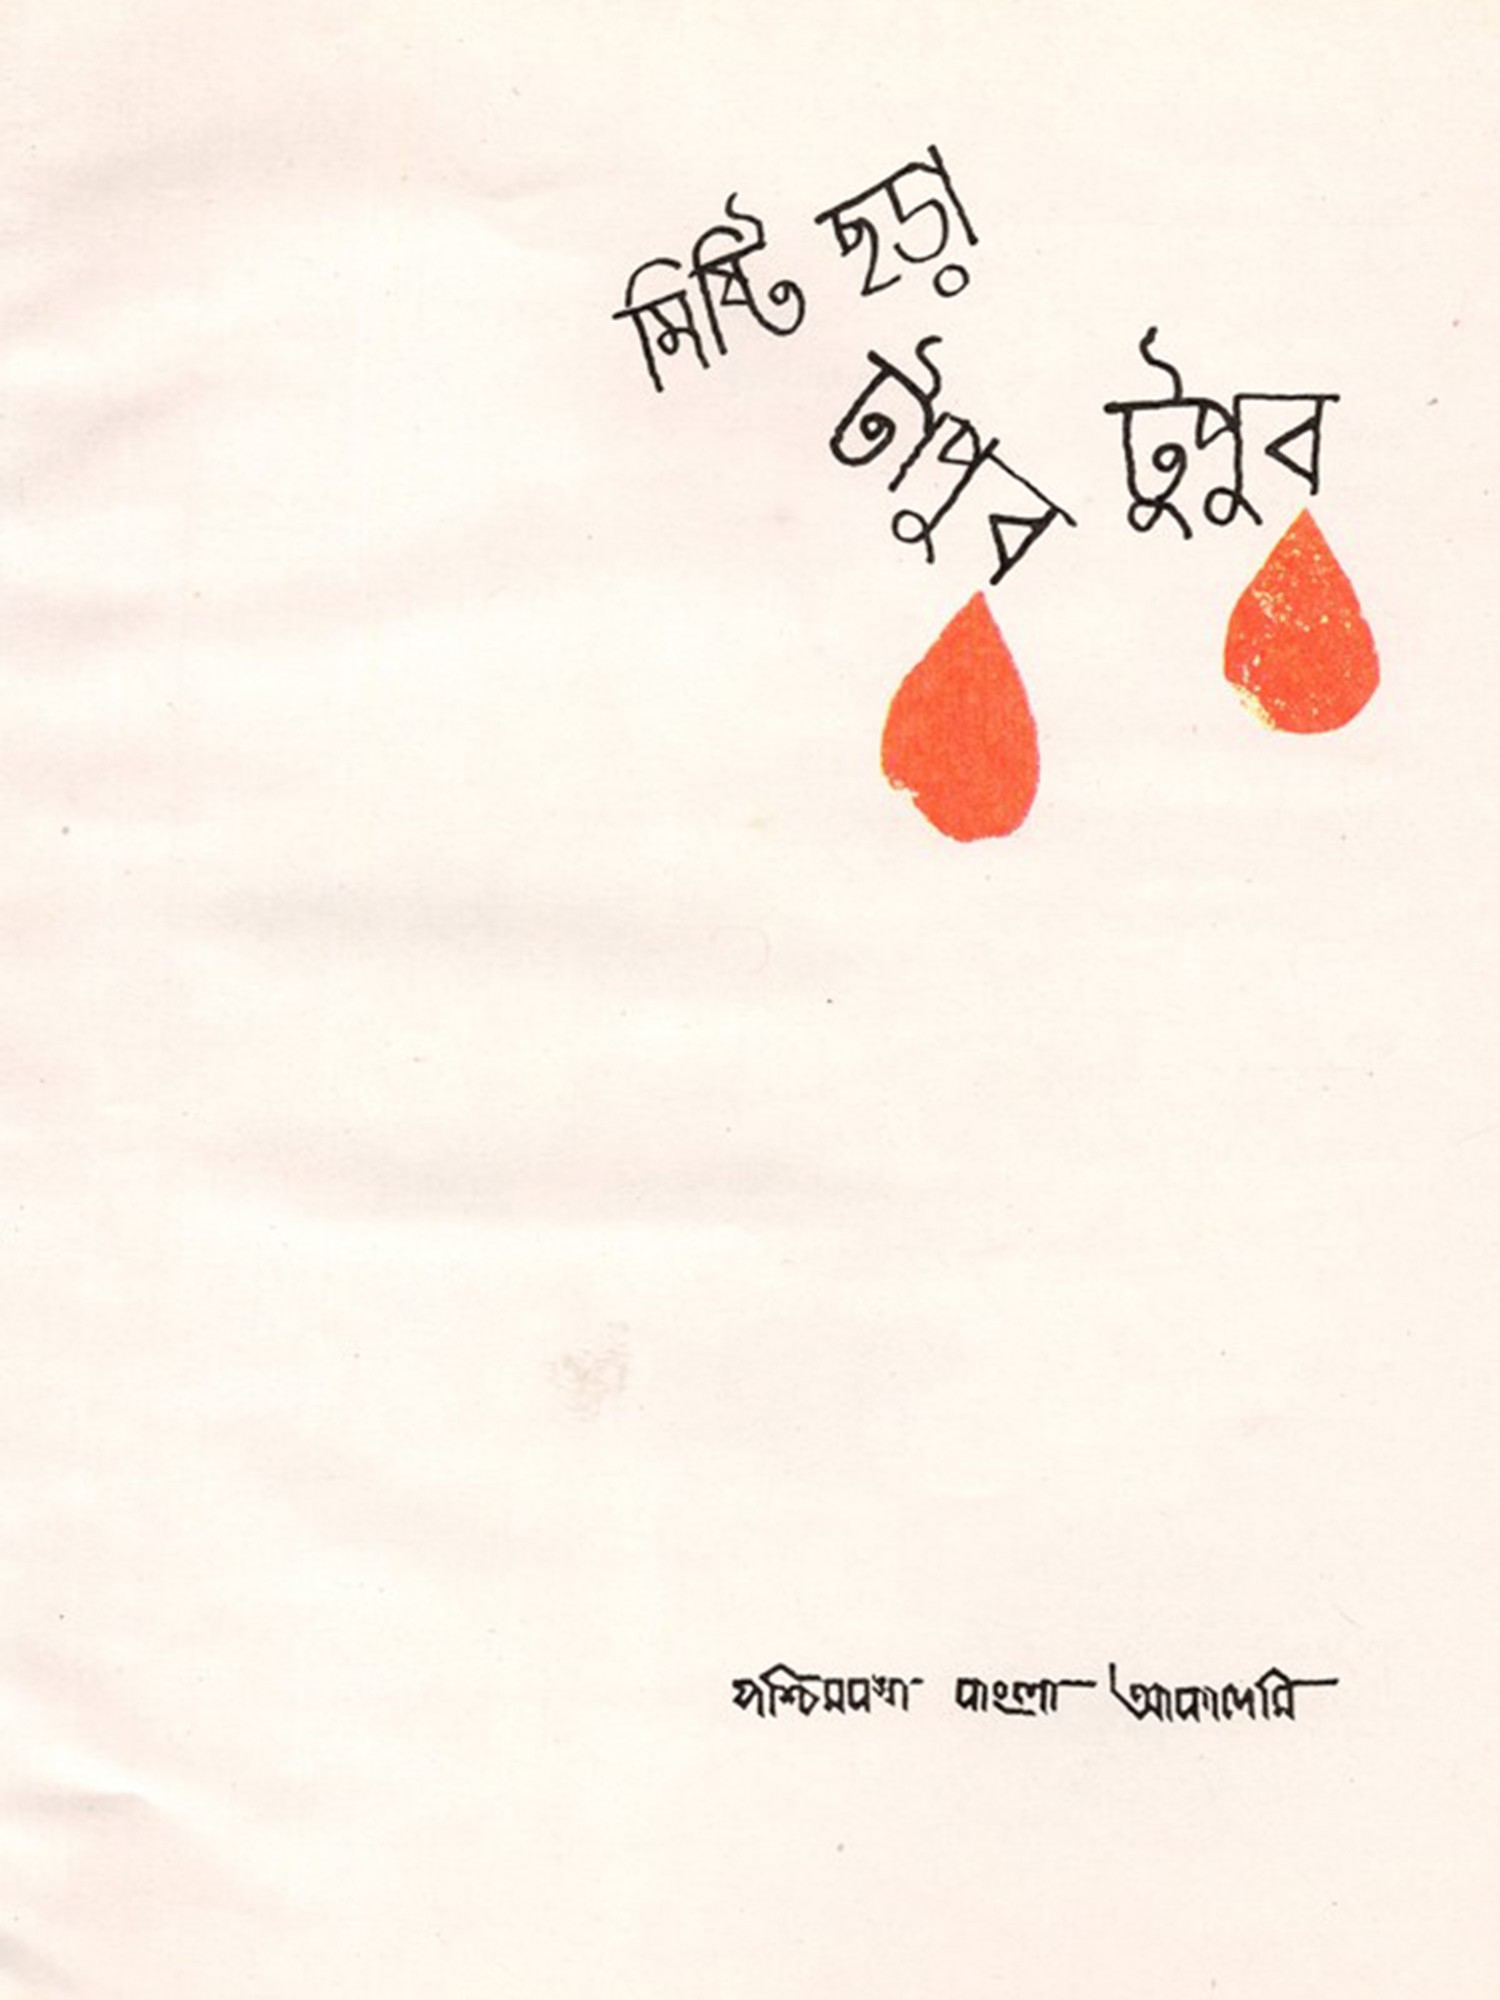 মিষ্টি ছড়া
টাপুর টুপুর
পশ্চিমবঙ্গ বাংলা আকাদেমি